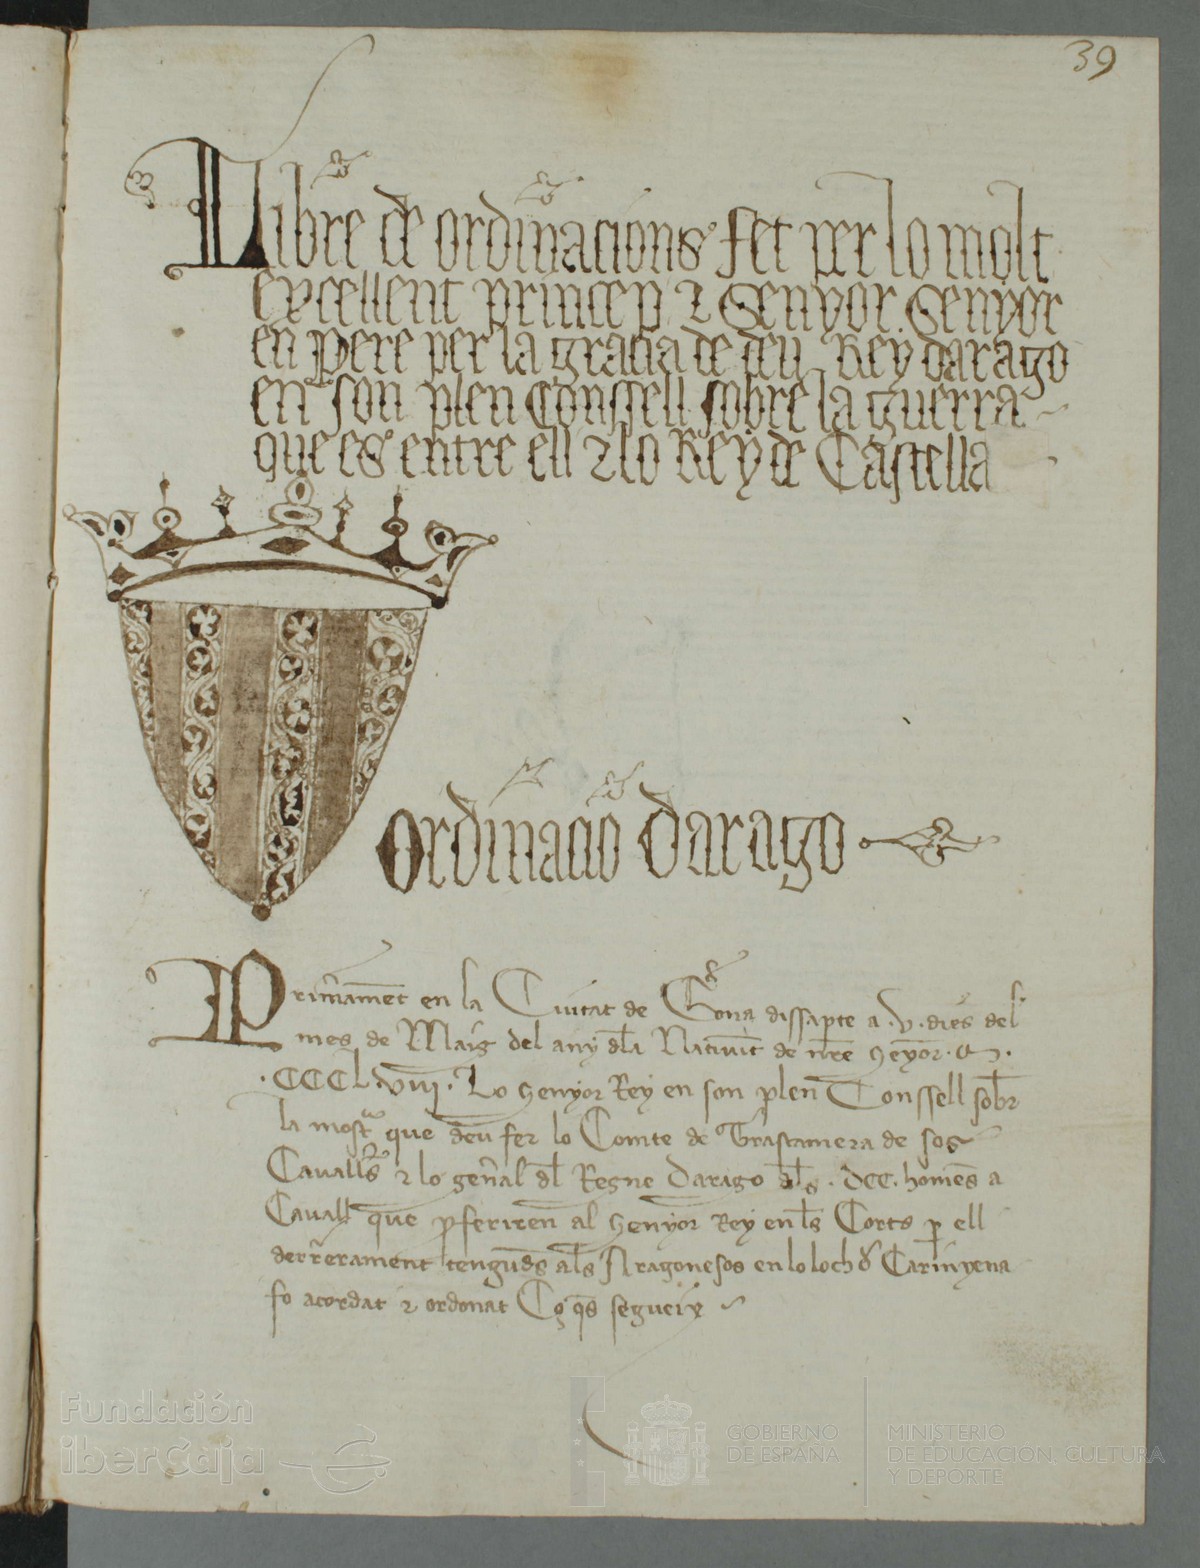 39
Libre de ordinacions fet per lo molt
excellent princep ⁊ Senyor Senyor
en pere per la gracia de deu Rey darago
en son plen Conssell sobre la guerra
que es entre ell ⁊ lo Rey de Castella
Ordinacio Darago
Primament en la Ciutat de Gona dissapte a .v. dies del
mes de Maig del any dla Natiuit de nre senyor . m .
.CCCL.viij. Lo senyor Rey en son plen Conssell sobr
la most que deu fer lo Comte de Trastamera de sos
Cauallrs ⁊ lo genal dl Regne Darago dls . DCC. homes a
Cauall que pferiren al senyor Rey en ls Corts p ell
derrerament tengudes als Aragonesos en lo loch d Carinyena
fo acordat ⁊ ordonat Co qs segueix
Fundación
iberCaja
GOBIERNO
DE ESPAÑA
MINISTERIO
DE EDUCACIÓN, CULTURA
Y DEPORTE